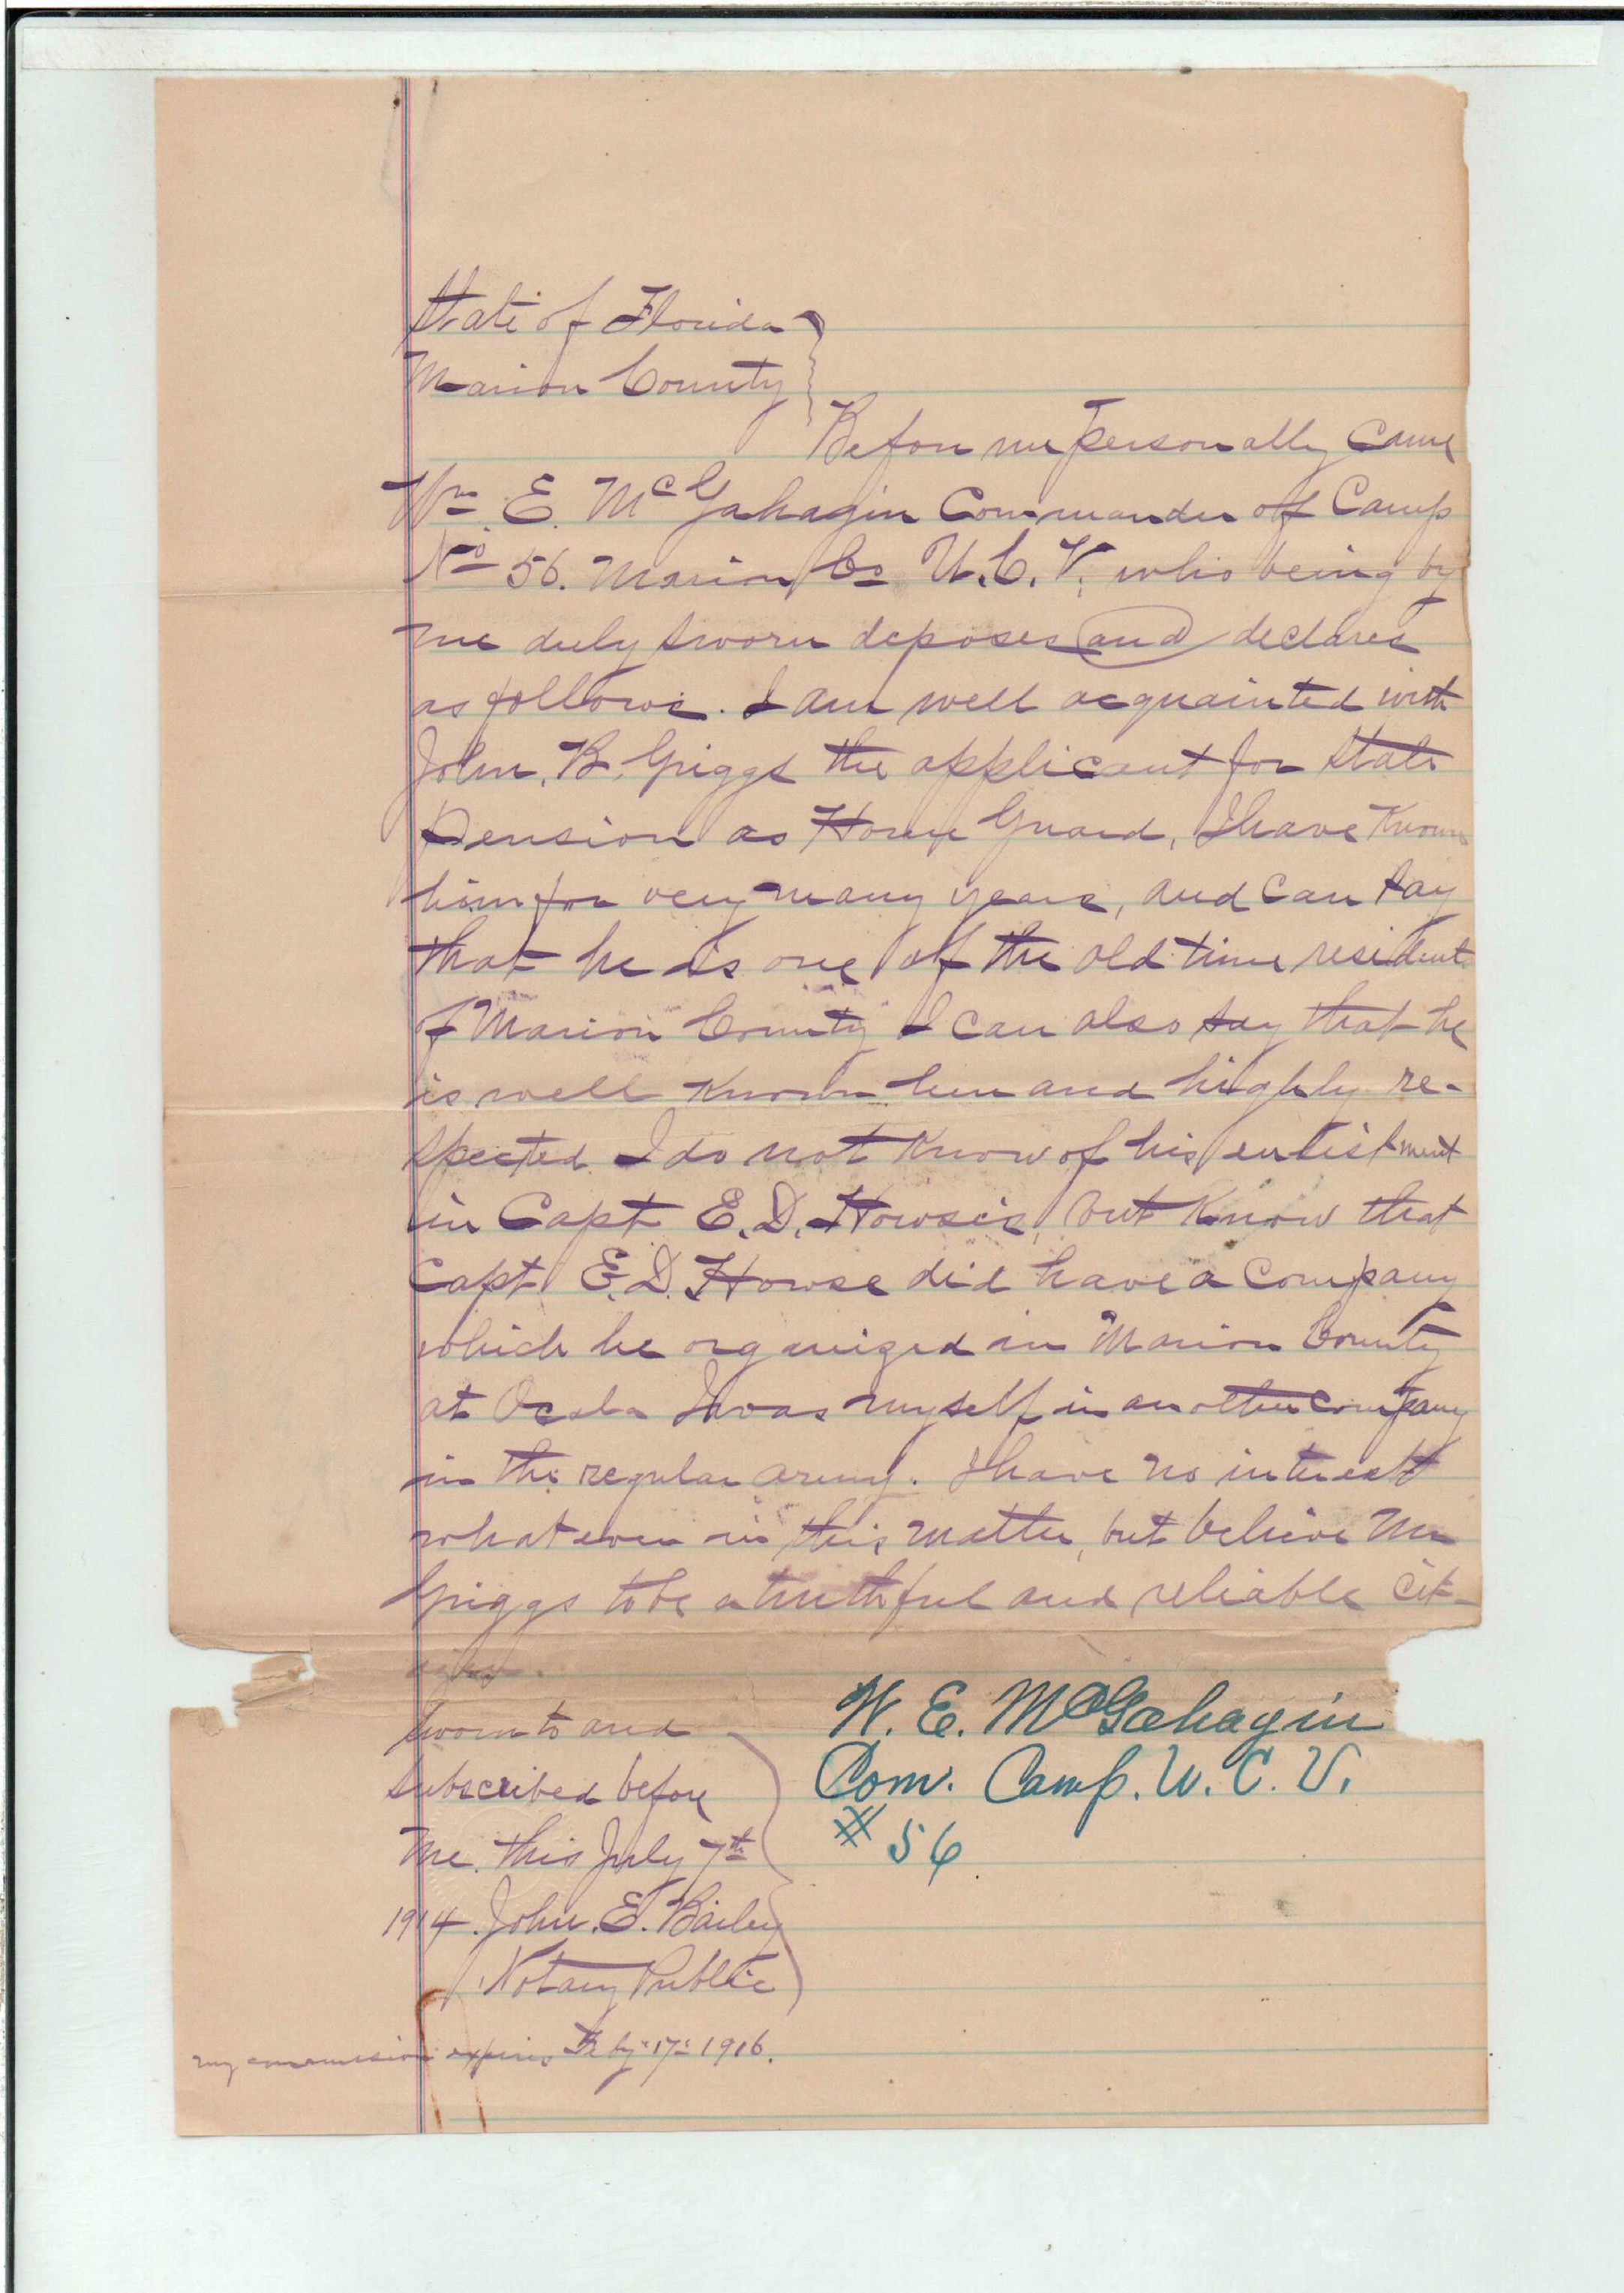 State of Florida
Marion County
Before me personally came
Wm E. McGahagin Commander of Camp
No 56. Marion Co U.C.V. who being by
me duly sworn deposes and declares
as follows. I am well acquainted with
John. B. Griggs the applicant for State
Pension as Home Guard, I have known
him for very many years, and can say
that he is one of the old time residents
of Marion County I can also say that he
is well known here and highly re-
spected. I do not know of his enlistment
in Capt E.D. Howse's, but know that
Capt E.D. Howse did have a company
which he organized in Marion County
at Ocala I was myself in another company
in the regular army. I have no interest
whatever in this matter, but believe Mr
Griggs to be a truthful and reliable cit-
izen.
Sworn to and
subscribed before
me. this July 7th
1914. John. E. Bailey
Notary Public
my commission expires Feby 17th 1916.
W. E. McGahagin
Com. Camp. U. C. V.
# 56.